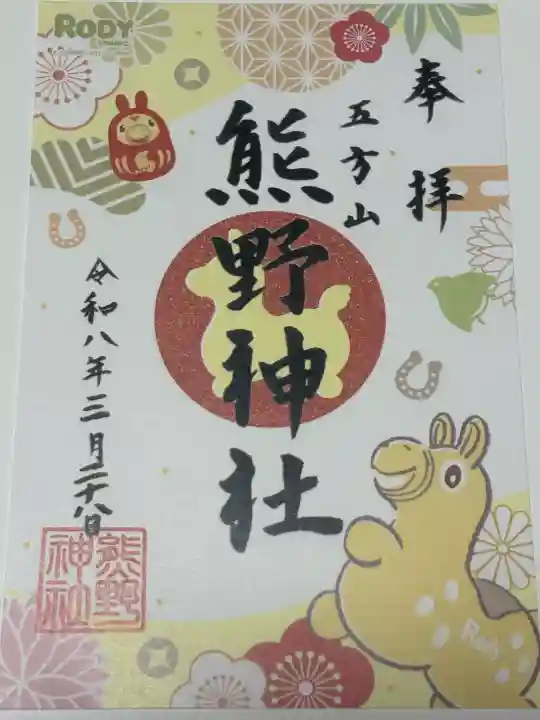 RODY
奉拝
五方山
熊野神社
令和八年三月二十八日
熊野
神社
Rody